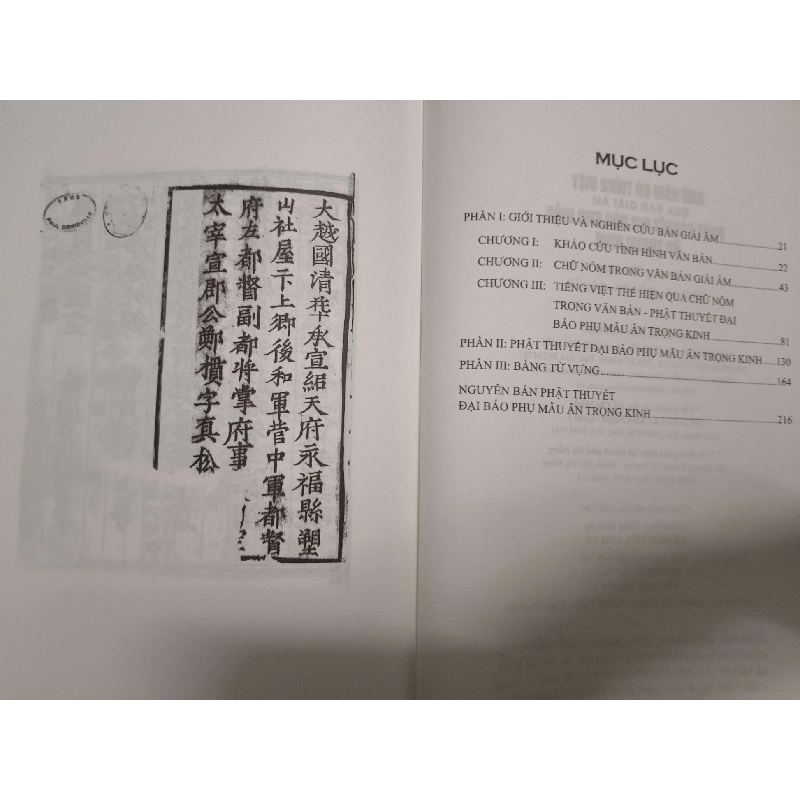 大越國清華承宣紹天府永福縣塑
山社屋下上卿後和軍营中軍都督
府左都督副都將掌府事
太宰宣郡公鄭檟字真松
PAUL DEMIEVILLE
MỤC LỤC
PHẦN I: GIỚI THIỆU VÀ NGHIÊN CỨU BẢN GIẢI ÂM 21
CHƯƠNG I: KHẢO CỨU TÌNH HÌNH VĂN BẢN 22
CHƯƠNG II: CHỮ NÔM TRONG VĂN BẢN GIẢI ÂM 43
CHƯƠNG III: TIẾNG VIỆT THỂ HIỆN QUA CHỮ NÔM
TRONG VĂN BẢN - PHẬT THUYẾT ĐẠI
BÁO PHỤ MẪU ÂN TRỌNG KINH 81
PHẦN II: PHẬT THUYẾT ĐẠI BÁO PHỤ MẪU ÂN TRỌNG KINH 130
PHẦN III: BẢNG TỪ VỰNG 164
NGUYÊN BẢN PHẬT THUYẾT
ĐẠI BÁO PHỤ MẪU ÂN TRỌNG KINH 216